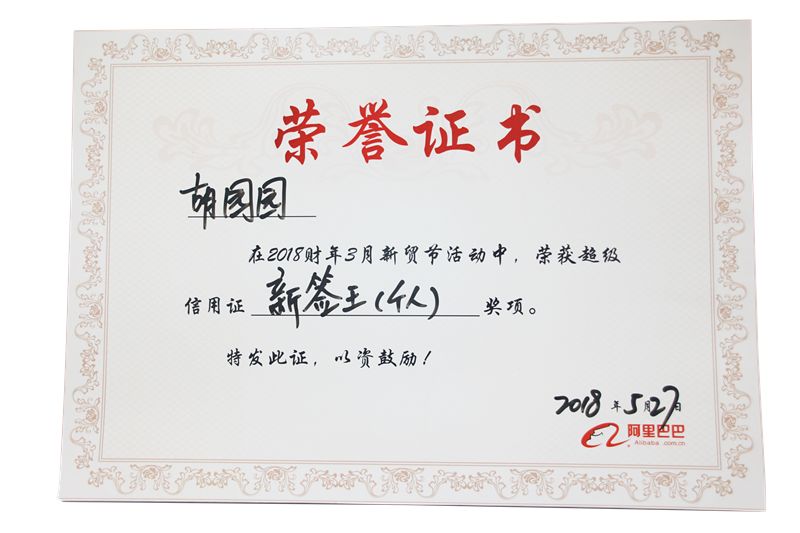 荣誉证书
胡园园
在2018财年3月新贸节活动中，荣获超级
信用证 新签王(个人) 奖项。
特发此证，以资鼓励！
2018年5月27日
阿里巴巴
Alibaba.com.cn